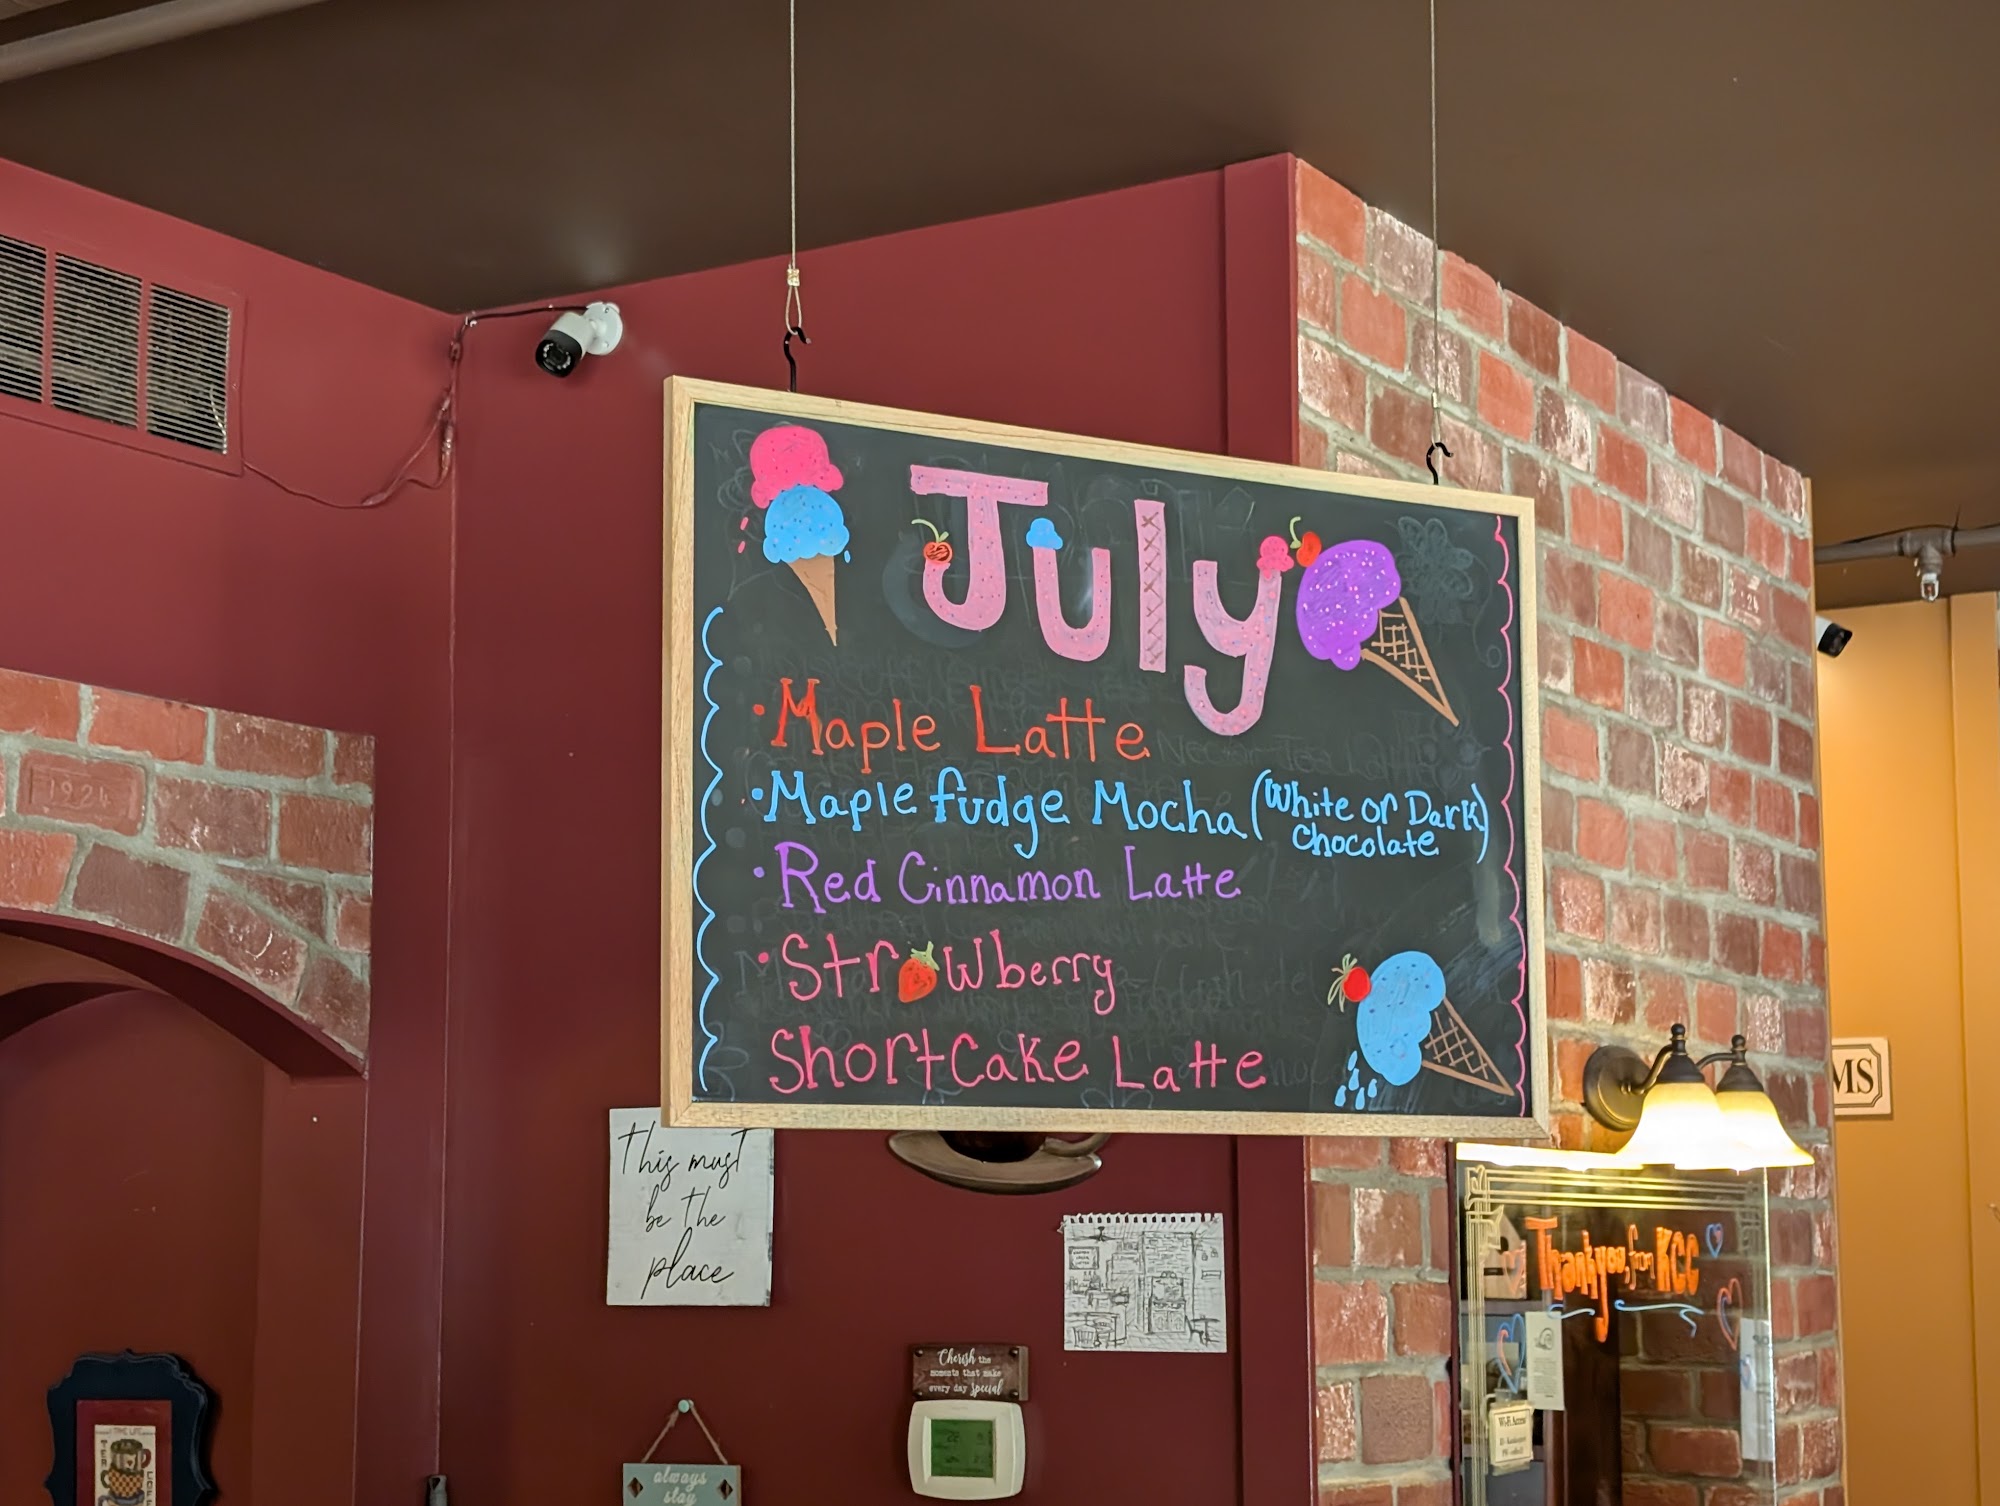 July
• Maple Latte
• Maple fudge Mocha (White or Dark
Chocolate)
• Red Cinnamon Latte
• Strawberry
ShortCake Latte
1924
This must
be the
place
Cherish the
moments that make
every day special
always
stay
MS
Thank you, from KCC
Wi-Fi Access